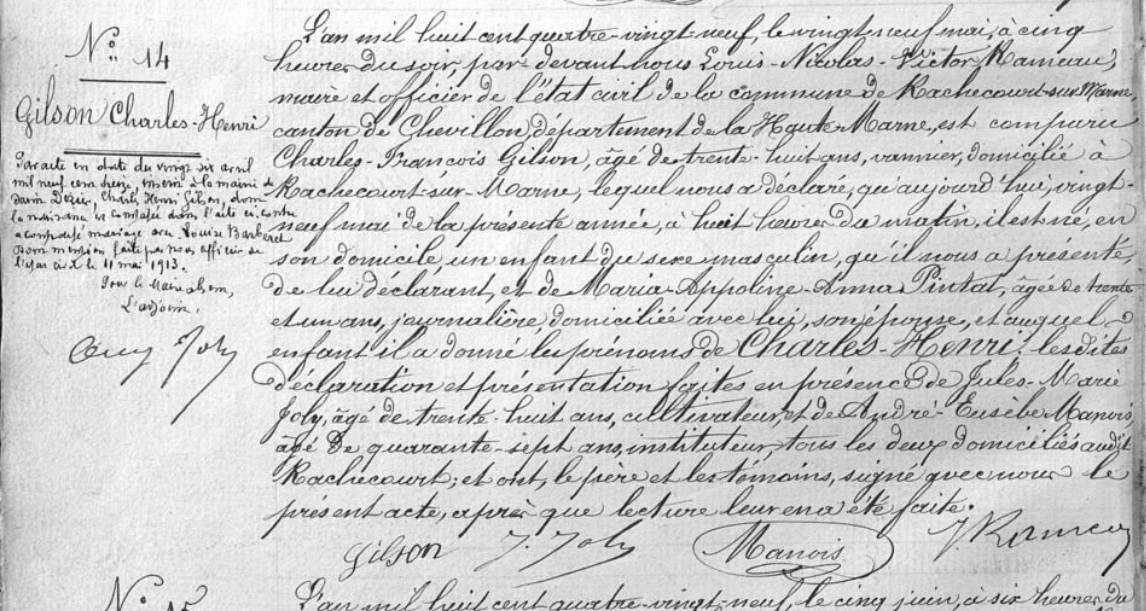 N° 14
Gilson Charles-Henri
Par acte en date du vingt six avril
mil neuf cent treize, inscrit à la mairie de
Saint Dizier, Charles Henri Gilson, dont
la naissance est constatée dans l'acte ci-contre
a contracté mariage avec Louise Barberet
dont mention faite par nous officier de
l'état civil le 11 mai 1913.
Pour le Maire absent,
L'adjoint,
Joly
L'an mil huit cent quatre-vingt-neuf, le vingt-neuf mai, à cinq
heures du soir, par devant nous Louis-Nicolas-Victor Rameau,
maire et officier de l'état civil de la commune de Rachecourt-sur-Marne,
canton de Chevillon, département de la Haute-Marne, est comparu
Charles-François Gilson, âgé de trente-huit ans, vannier, domicilié à
Rachecourt-sur-Marne, lequel nous a déclaré, qu'aujourd'hui, vingt-
neuf mai de la présente année, à huit heures du matin, il est né, en
son domicile un enfant du sexe masculin, qu'il nous a présenté,
de lui déclarant, et de Maria-Appoline-Anna Pintat, âgée de trente
et un ans, journalière, domiciliée avec lui, son épouse, et auquel
enfant il a donné les prénoms de Charles-Henri. les dites
déclaration et présentation faites en présence de Jules-Marie
Joly, âgé de trente-huit ans, cultivateur, et de André-Eusèbe Manois,
âgé de quarante-sept ans, instituteur, tous les deux domiciliés audit
Rachecourt; et ont, le père et les témoins, signé avec nous le
présent acte, après que lecture leur en a été faite.
Gilson J. Joly Manois Rameau
N° 15
L'an mil huit cent quatre-vingt-neuf, le cinq juin à six heures du